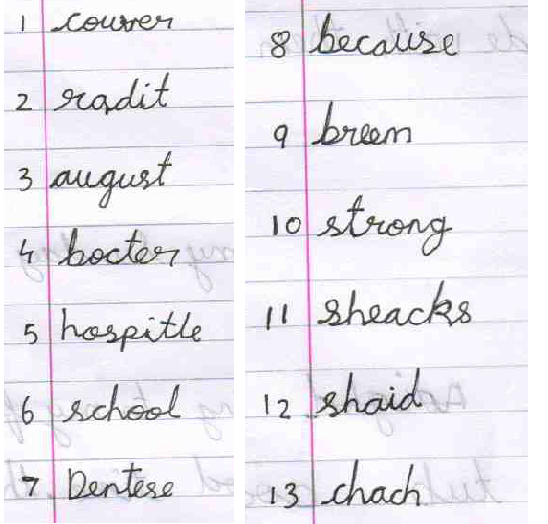 1 couver
2 radit
3 august
4 bocter
5 hospitle
6 school
7 Dentese
8 because
9 breem
10 strong
11 sheacks
12 shaid
13 chach